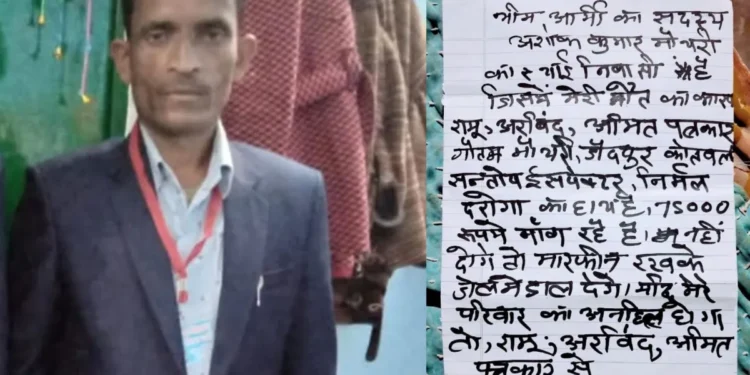 भीम आर्मी का सदस्य
अशोक कुमार मौर्या
का स्थाई निवासी है
जिसमें मेरी मौत का कारण
रामू, अरविंद, अमित पत्रकार
गौतम मौर्य, जैदपुर कोतवाल
सन्तोष ईंसपेक्टर, निर्मल
दरोगा का हाथ है, 75000
रूपये माँग रहे है। नहीं
दोगे तो मारफीन रखके
जेलमे डाल देगे। यदि मेरे
परिवार का अनहित होगा
तो, रामू, अरविंद, अमित
पत्रकार से